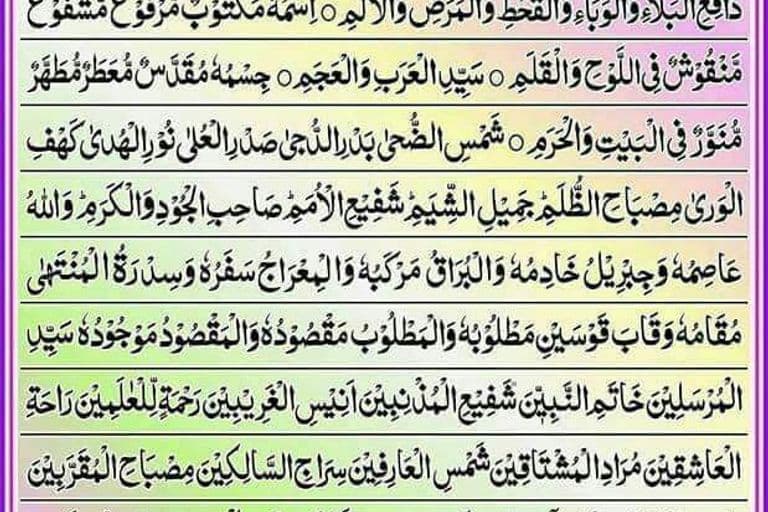 دَافِعِ الْبَلَاءِ وَالْوَبَاءِ وَالْقَحْطِ وَالْمَرَضِ وَالْأَلَمِ ○ اِسْمُهٗ مَكْتُوْبٌ مَّرْفُوْعٌ مَّشْفُوْعٌ
مَّنْقُوْشٌ فِى اللَّوْحِ وَالْقَلَمِ ○ سَيِّدِ الْعَرَبِ وَالْعَجَمِ ○ جِسْمُهٗ مُقَدَّسٌ مُّعَطَّرٌ مُّطَهَّرٌ
مُّنَوَّرٌ فِى الْبَيْتِ وَالْحَرَمِ ○ شَمْسِ الضُّحٰى بَدْرِ الدُّجٰى صَدْرِ الْعُلٰى نُوْرِ الْهُدٰى كَهْفِ
الْوَرٰى مِصْبَاحِ الظُّلَمِ جَمِيْلِ الشِّيَمِ شَفِيْعِ الْاُمَمِ صَاحِبِ الْجُوْدِ وَالْكَرَمِ وَاللهُ
عَاصِمُهٗ وَجِبْرِيْلُ خَادِمُهٗ وَالْبُرَاقُ مَرْكَبُهٗ وَالْمِعْرَاجُ سَفَرُهٗ وَسِدْرَةُ الْمُنْتَهٰى
مَقَامُهٗ وَقَابَ قَوْسَيْنِ مَطْلُوْبُهٗ وَالْمَطْلُوْبُ مَقْصُوْدُهٗ وَالْمَقْصُوْدُ مَوْجُوْدُهٗ سَيِّدِ
الْمُرْسَلِيْنَ خَاتَمِ النَّبِيّٖنَ شَفِيْعِ الْمُذْنِبِيْنَ اَنِيْسِ الْغَرِيْبِيْنَ رَحْمَةٍ لِّلْعٰلَمِيْنَ رَاحَةِ
الْعَاشِقِيْنَ مُرَادِ الْمُشْتَاقِيْنَ شَمْسِ الْعَارِفِيْنَ سِرَاجِ السَّالِكِيْنَ مِصْبَاحِ الْمُقَرَّبِيْنَ